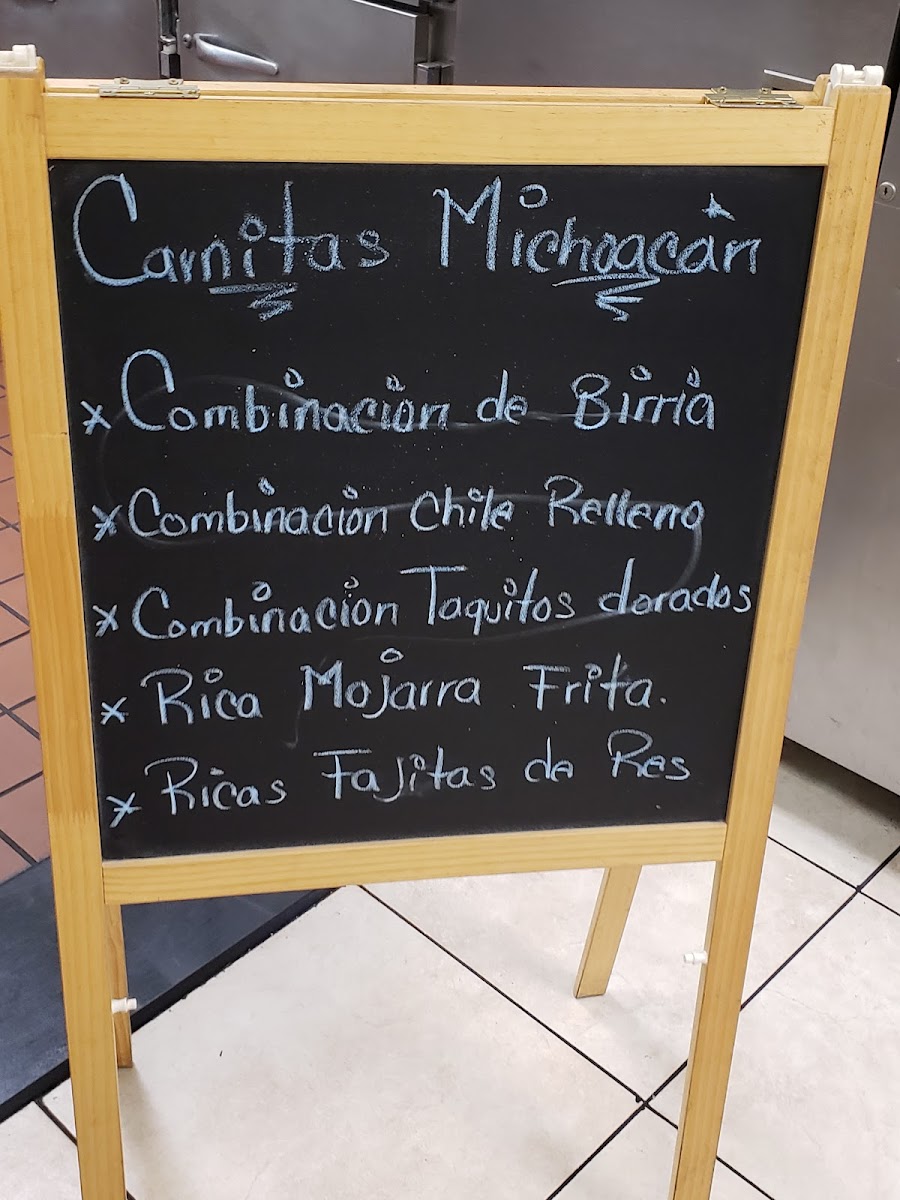 Carnitas Michoacán
* Combinacion de Birria
* Combinacion Chile Relleno
* Combinacion Taquitos dorados
* Rica Mojarra Frita.
* Ricas Fajitas de Res